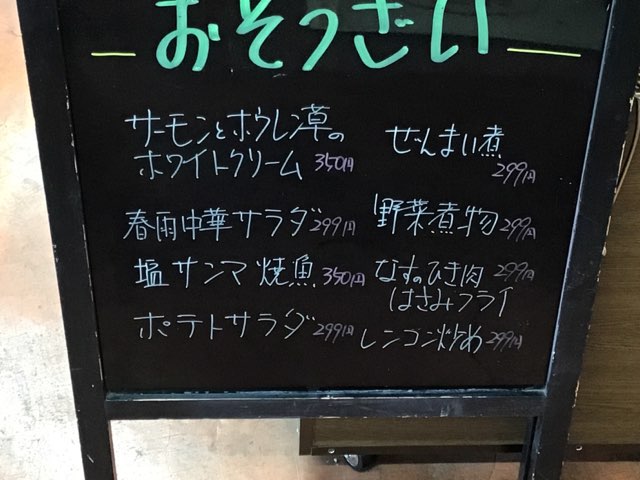 おそうざい
サーモンとホウレン草の
ホワイトクリーム 350円
春雨中華サラダ 299円
塩サンマ焼魚 350円
ポテトサラダ 299円
ぜんまい煮
299円
野菜煮物 299円
なすのひき肉 299円
はさみフライ
レンコン炒め 299円